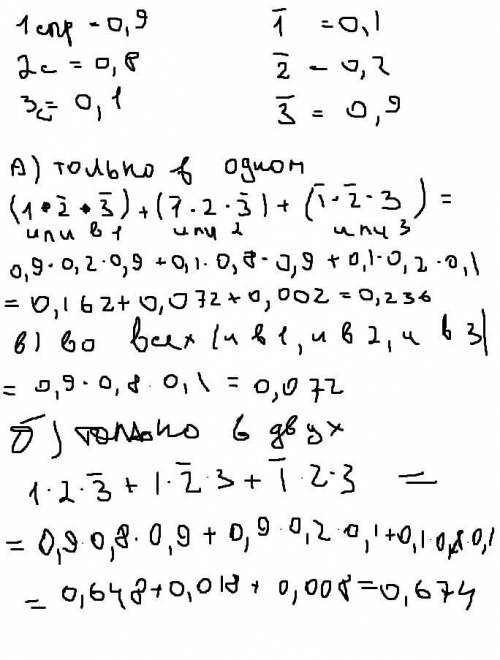 1спр - 0,9 1̅ = 0,1
2с = 0,8 2̅ - 0,2
3с = 0,1 3̅ = 0,9
А) только в одном
(1•2̅•3̅)+(1̅·2·3̅)+(1̅·2̅·3)=
или в 1 или 2 или 3
0,9·0,2·0,9+0,1·0,8·0,9+0,1·0,2·0,1
=0,162+0,072+0,002=0,236
в) во всех (и в 1, и в 2, и в 3)
= 0,9·0,8·0,1 = 0,072
б) только в двух
1·2·3̅ + 1·2̅·3 + 1̅·2·3 =
= 0,9·0,8·0,9 + 0,9·0,2·0,1+0,1·0,8·0,1
= 0,648+0,018+0,008=0,674